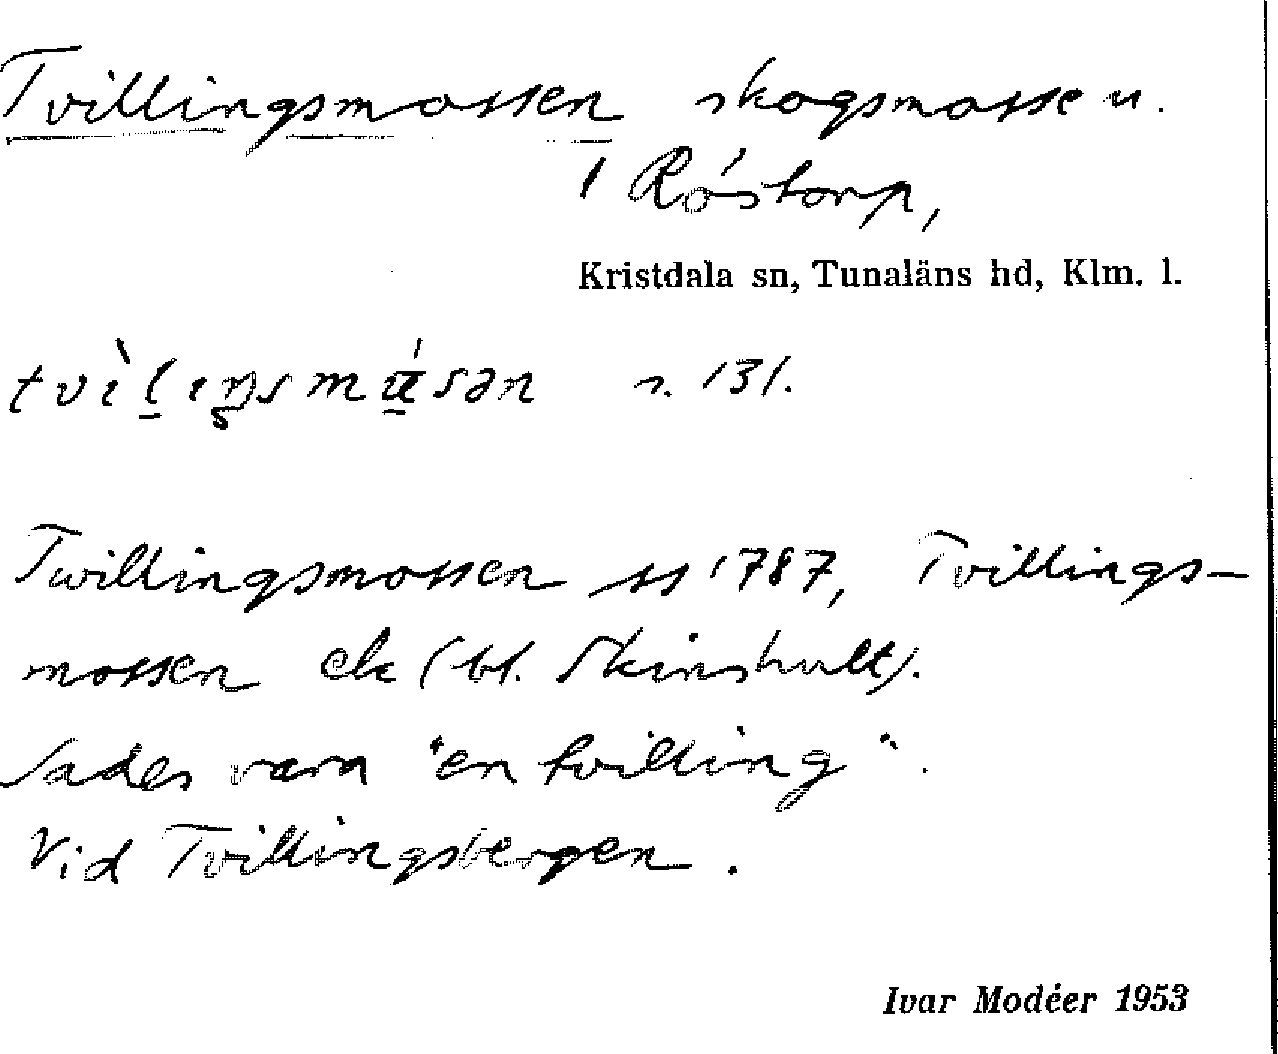 Tvillingsmossen skogsmosse u.
/ Röstorp,
Kristdala sn, Tunaläns hd, Klm. l.
s. 131.
Twillingsmossen ss 1787, Tvillings-
mossen ek (bl. Skinshult).
Sades vara "en tvilling".
Vid Tvillingsbergen.
Ivar Modéer 1953